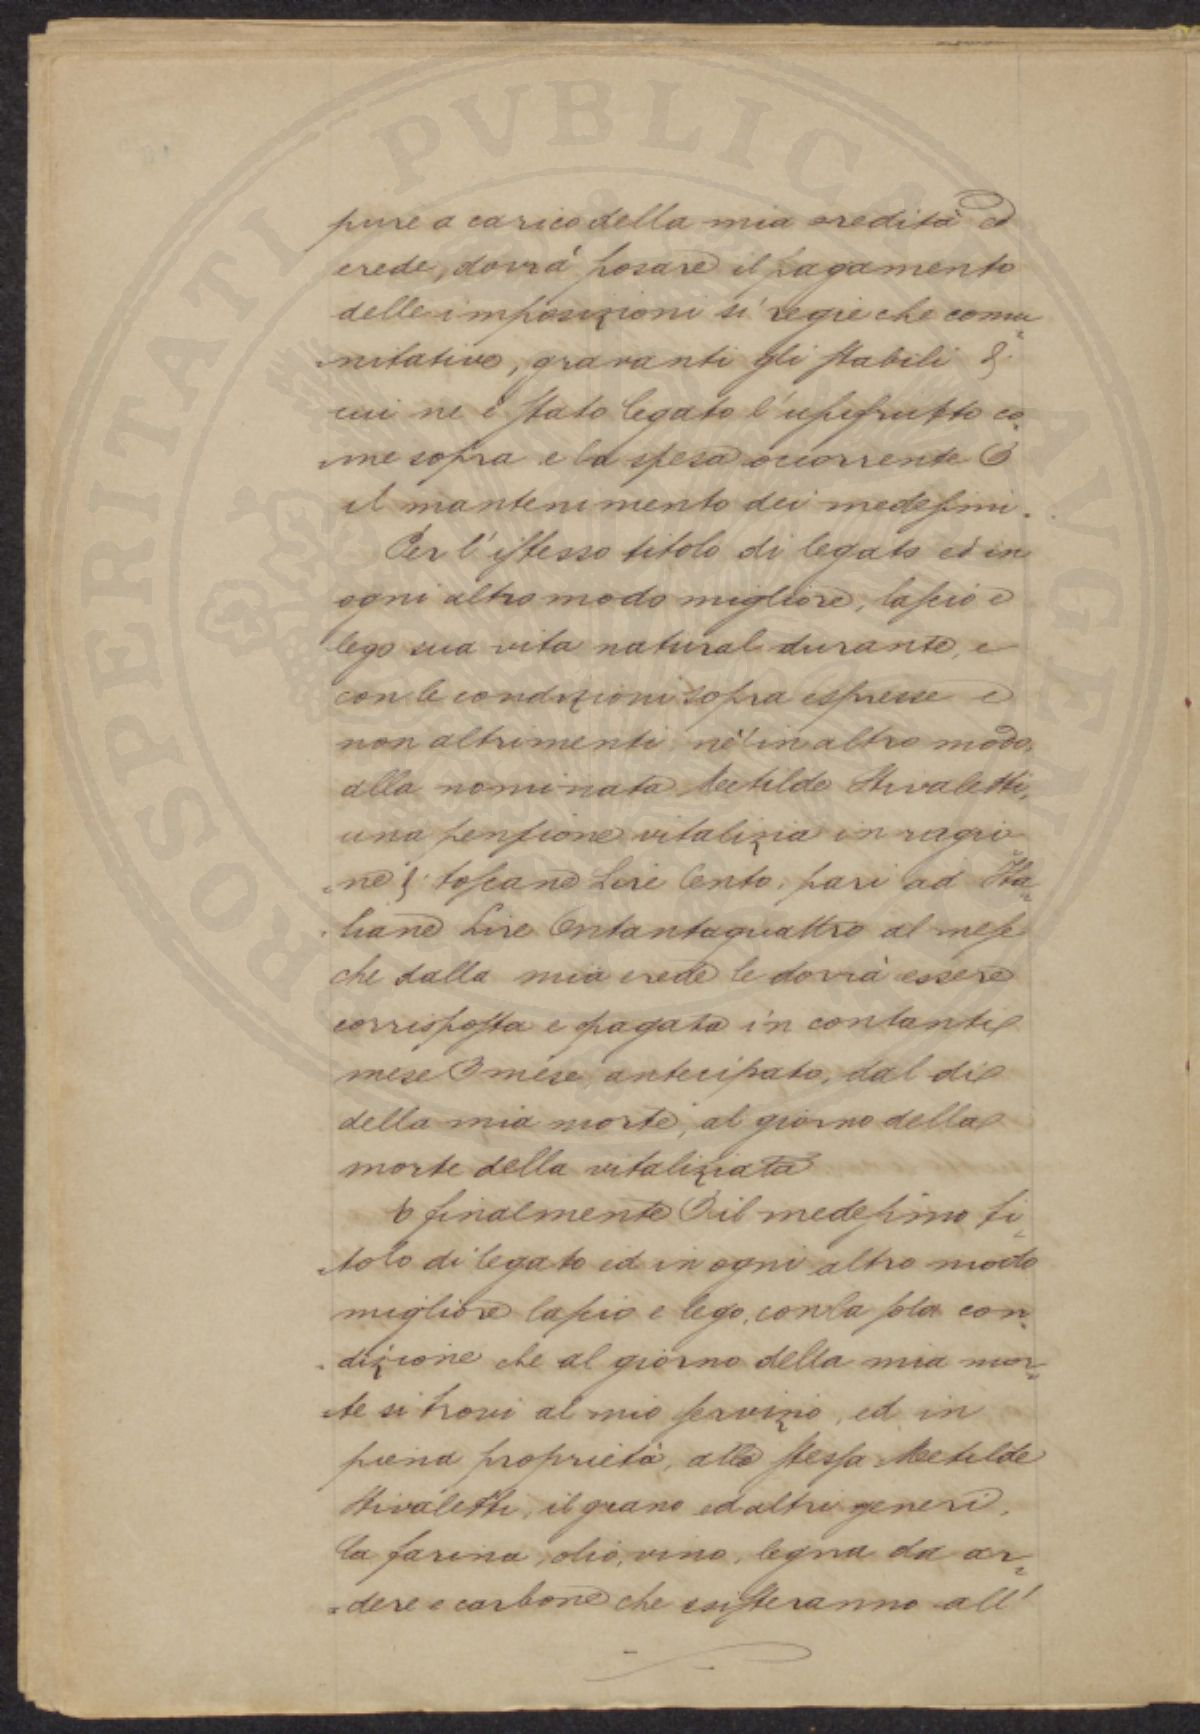 pure a carico della mia eredità ed
erede, dovrà posare il pagamento
delle imposizioni sì regie che comu-
-nitative, gravanti gli stabili di
cui ne è stato legato l'usufrutto co-
-me sopra e la spesa occorrente per
il mantenimento dei medesimi.
Per l'istesso titolo di legato ed in
ogni altro modo migliore, lascio e
lego sua vita natural durante, e
con le condizioni sopra espresse e
non altrimenti, nè in altro modo,
alla nominata Metilde Stivaletti,
una pensione vitalizia in ragio-
-ne di toscane Lire Cento, pari ad Ita-
-liane Lire Ottantaquattro al mese
che dalla mia erede le dovrà essere
corrisposta e pagata in contanti
mese per mese antecipato, dal dì
della mia morte, al giorno della
morte della vitaliziata
E finalmente per il medesimo ti-
-tolo di legato ed in ogni altro modo
migliore lascio e lego, con la sola con-
-dizione che al giorno della mia mor-
-te si trovi al mio servizio, ed in
piena proprietà, alla stessa Metilde
Stivaletti, il grano ed altri generi,
la farina, olio, vino, legna da ar-
-dere e carbone che esisteranno all'
PROSPERITATI PVBLICAE AVGENDAE